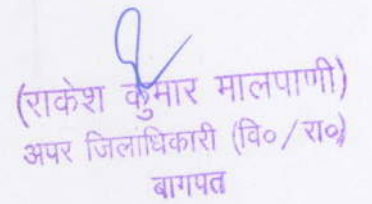 (राकेश कुमार मालपाणी)
अपर जिलाधिकारी (वि०/रा०)
बागपत